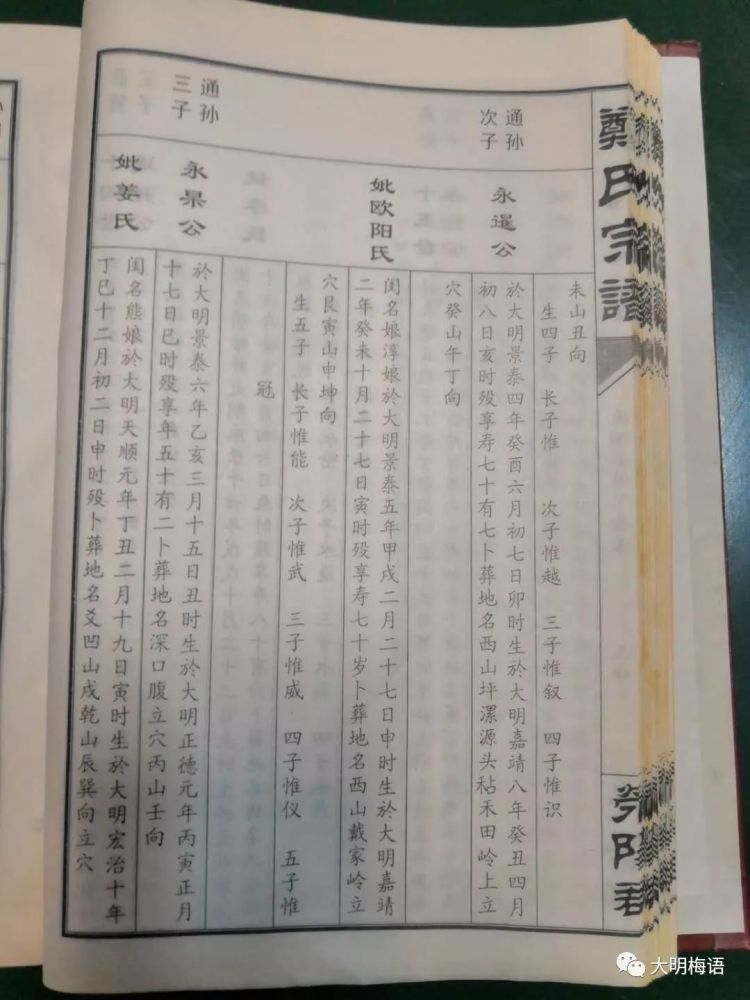 鄭氏宗譜
未山丑向
生四子 长子惟 次子惟越 三子惟叙 四子惟识
通孙次子
永暹公
於大明景泰四年癸酉六月初七日卯时生於大明嘉靖八年癸丑四月
初八日亥时殁享寿七十有七卜葬地名西山坪漯源头秥禾田岭上立
穴癸山午丁向
妣欧阳氏
闺名娘淳娘於大明景泰五年甲戌二月二十七日申时生於大明嘉靖
二年癸未十月二十七日寅时殁享寿七十岁卜葬地名西山戴家岭立
穴艮寅山申坤向
生五子 长子惟能 次子惟武 三子惟威 四子惟仪 五子惟
冠
通孙三子
永杲公
於大明景泰六年乙亥三月十五日丑时生於大明正德元年丙寅正月
十七日巳时殁享年五十有二卜葬地名深口腹立穴丙山壬向
妣姜氏
闺名熊娘於大明天顺元年丁丑二月十九日寅时生於大明宏治十年
丁巳十二月初二日申时殁卜葬地名爻凹山戌乾山辰巽向立穴
大明梅语